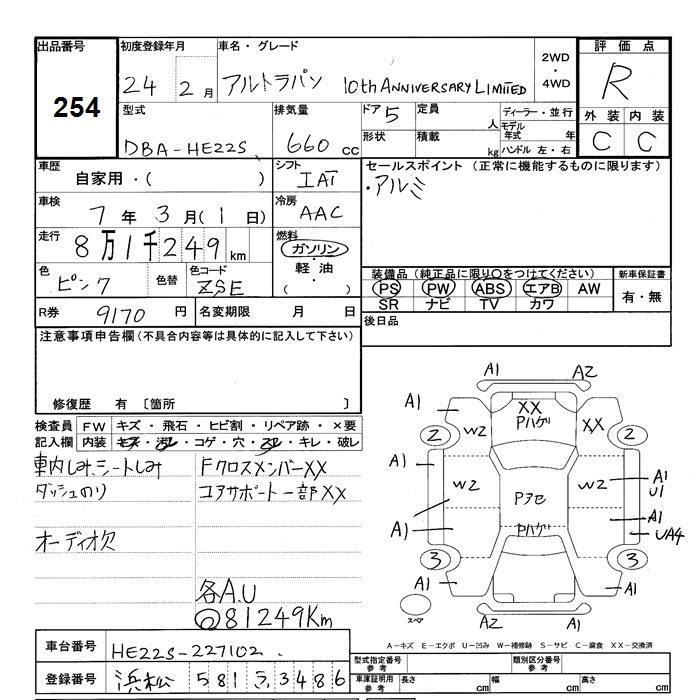 出品番号
254
初度登録年月
24 2月
車名・グレード
アルトラパン 10th ANNIVERSARY LIMITED
2WD
・
4WD
評価点
R
外装 内装
C C
型式
DBA-HE22S
排気量
660 cc
ドア 5
定員
人
形状
積載
kg
ディーラー・並行
モデル年式 年
ハンドル 左・右
車歴
自家用・( )
シフト
IAT
セールスポイント (正常に機能するものに限ります)
・アルミ
車検
7年3月(1日)
冷房
AAC
走行
8万1千249km
燃料
ガソリン
・
軽油
( )
色
ピンク
色替
色コード
ZSE
装備品(純正品に限り○をつけてください)
PS PW ABS エアB AW
SR ナビ TV カワ
新車保証書
有・無
R券
9170円
名変期限 月 日
後日品
注意事項申告欄(不具合内容等は具体的に記入して下さい)
修復歴 有 〔箇所 〕
検査員記入欄
FW キズ・飛石・ヒビ割・リペア跡・×要
内装 キズ・汚レ・コゲ・穴・スレ・キレ・破レ
車内しみ、シートしみ
ダッシュのり
オーディオ欠
Fクロスメンバー××
コアサポート一部××
各A.U
◎81249Km
A1 A2
A1 W2 XX Pハゲ XX
2 2
A1 W2 Pアセ W2 A1 U1
A1 Pハゲ A1 UA4
3 3
A1 A1
スペア
A2 A1
A-キズ E-エクボ U-凹み W-補修跡 S-サビ C-腐食 XX-交換済
車台番号
HE22S-227102
登録番号
浜松 581 う 3486
型式指定番号
参考
類別区分番号
参考
車庫証明用
参考
長さ cm 幅 cm 高さ cm